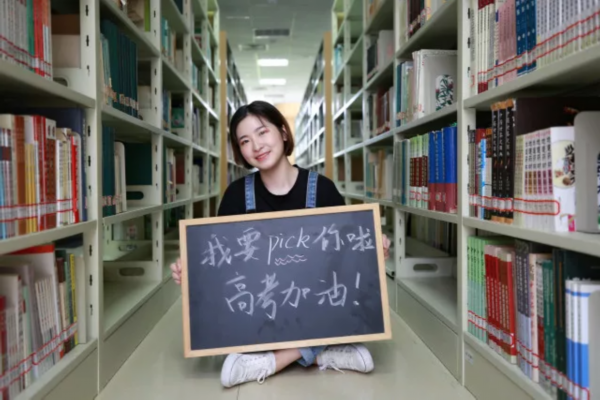 我要pick你啦
高考加油!